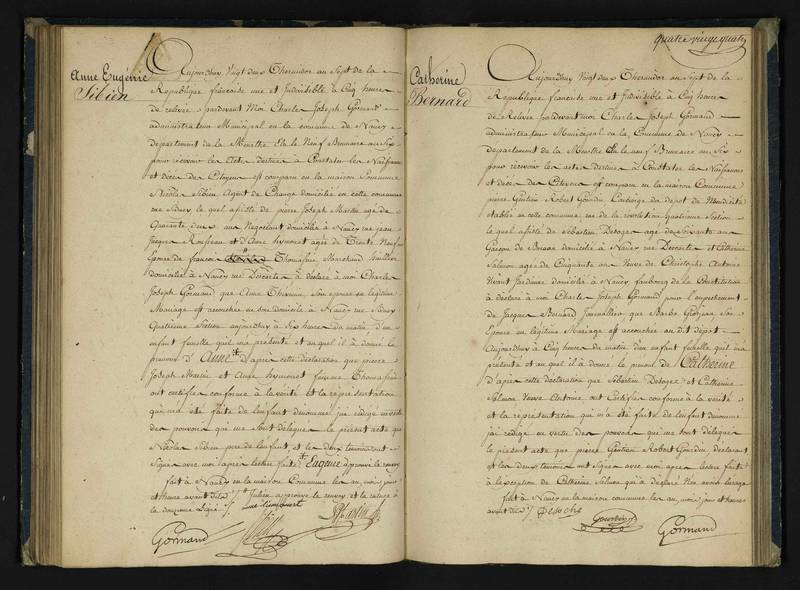 Anne Eugénie
Sibien
Aujourdhuy Vingt deux Thermidor an Sept de la
République française une et Indivisible à Cinq heures
de relevée pardevant Moi Charles Joseph Gormand
administrateur Municipal en la commune de Nancy
département de la Meurthe Elu le Neuf Brumaire an Six
pour recevoir les Actes destinés à Constater les Naissances
et décès des Citoyens est comparu en la maison Commune
Nicolas Sibien Agent de Change domicilié en cette commune
rue Sidney lequel assisté de pierre Joseph Martin agé de
Quarante deux ans Negociant domicilié à Nancy rue jean
Jacques Rousseau et d'Anne hymonet agée de Trente Neuf ans
Epouse de francois Thomassin Marchand
domicilié à Nancy rue Descartes à déclaré à moi Charles
Joseph Gormand que Anne Thevenin Son epouse en légitime
Mariage est accouchée en son domicile à Nancy rue Sidney
Quatrieme Section aujourdhuy à Six heures du matin d'un
enfant femelle qui ma présenté et auquel il à donné le
prenom d'Anne d'après cette déclaration que pierre
Joseph Martin et Anne hymonet femme Thomassin
ont certifiée conforme à la vérité et la représentation
qui ma été faite de lenfant denommé jai rédigé en vertu
des pouvoirs qui me sont délégués le présent acte que
Nicolas Sibien pere de lenfant, et les deux temoins ont
Signé avec moi après lecture faite Eugénie approuvé le renvoy
fait à Nancy en la maison Commune les an, mois jour
et heure avant dits approuvé le renvoy, et la rature à
la douzieme Ligne
Anne himonet
Gormand
Sibien
quatre vingt quatre
Catherine
Bernard
Aujourdhuy Vingt deux Thermidor an Sept de la
République française une et Indivisible à Cinq heures
de Relevée pardevant moi Charles Joseph Gormand
administrateur Municipal en la Commune de Nancy
département de la Meurthe Elu le neuf Brumaire an Six
pour recevoir les actes destinés à Constater les Naissances
et décès des Citoyens est comparu en la maison Commune
pierre Robert Gourdin Concierge du depot de Mendicité
établie en cette commune rue de la révolution quatrieme Section
lequel assisté de Sébastien Desoge agé de Soixante ans
Garçon de Bureau domicilié à Nancy rue Descartes et Catherine
Salmon agée de Cinquante ans Veuve de Christophe Antoine
Vivant Jardinier domicilié à Nancy faubourg de la Constitution
à déclaré à moi Charles Joseph Gormand pour l'empechement
de Jacques Bernard Journallier que Barbe Son
Epouse en légitime Mariage est accouchée au dit dépôt
Aujourdhuy à Cinq heures du matin d'un enfant femelle quil ma
présenté et auquel il à donné le prenom de Catherine
d'après cette déclaration que Sébastien Desoge et Catherine
Salmon Veuve Antoine ont Certifiée conforme à la vérité
et la réprésentation qui m'a été faite de lenfant denommé
jai rédigé en vertu des pouvoirs qui me sont délégués
le présent acte que pierre Robert Gourdin, déclarant
et les deux temoins ont Signé avec moi après lecture faite
à l'exception de Catherine Salmon qui à déclaré Nen avoir lusage
fait à Nancy en la maison commune les an, mois jour et heures
avant dits
Desoche
Gourdin
Gormand